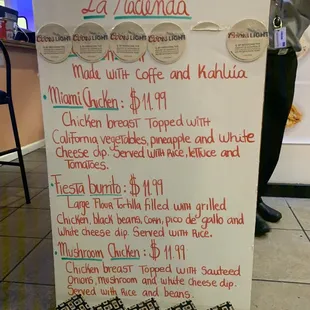 La Hacienda
Coors LIGHT
Coors LIGHT
Coors LIGHT
Coors LIGHT
Coors LIGHT
Made with Coffe and Kahluia
Miami Chicken: $11.99
Chicken breast topped with
California vegetables, pineapple and white
Cheese dip. Served with rice, lettuce and
Tomatoes.
Fiesta burrito: $11.99
Large Flour Tortilla filled with grilled
Chicken, black beans, corn, pico de gallo and
white cheese dip. Served with Rice.
Mushroom Chicken: $11.99
Chicken breast topped with Sauteed
Onions, mushroom and white cheese dip.
Served with rice and beans.